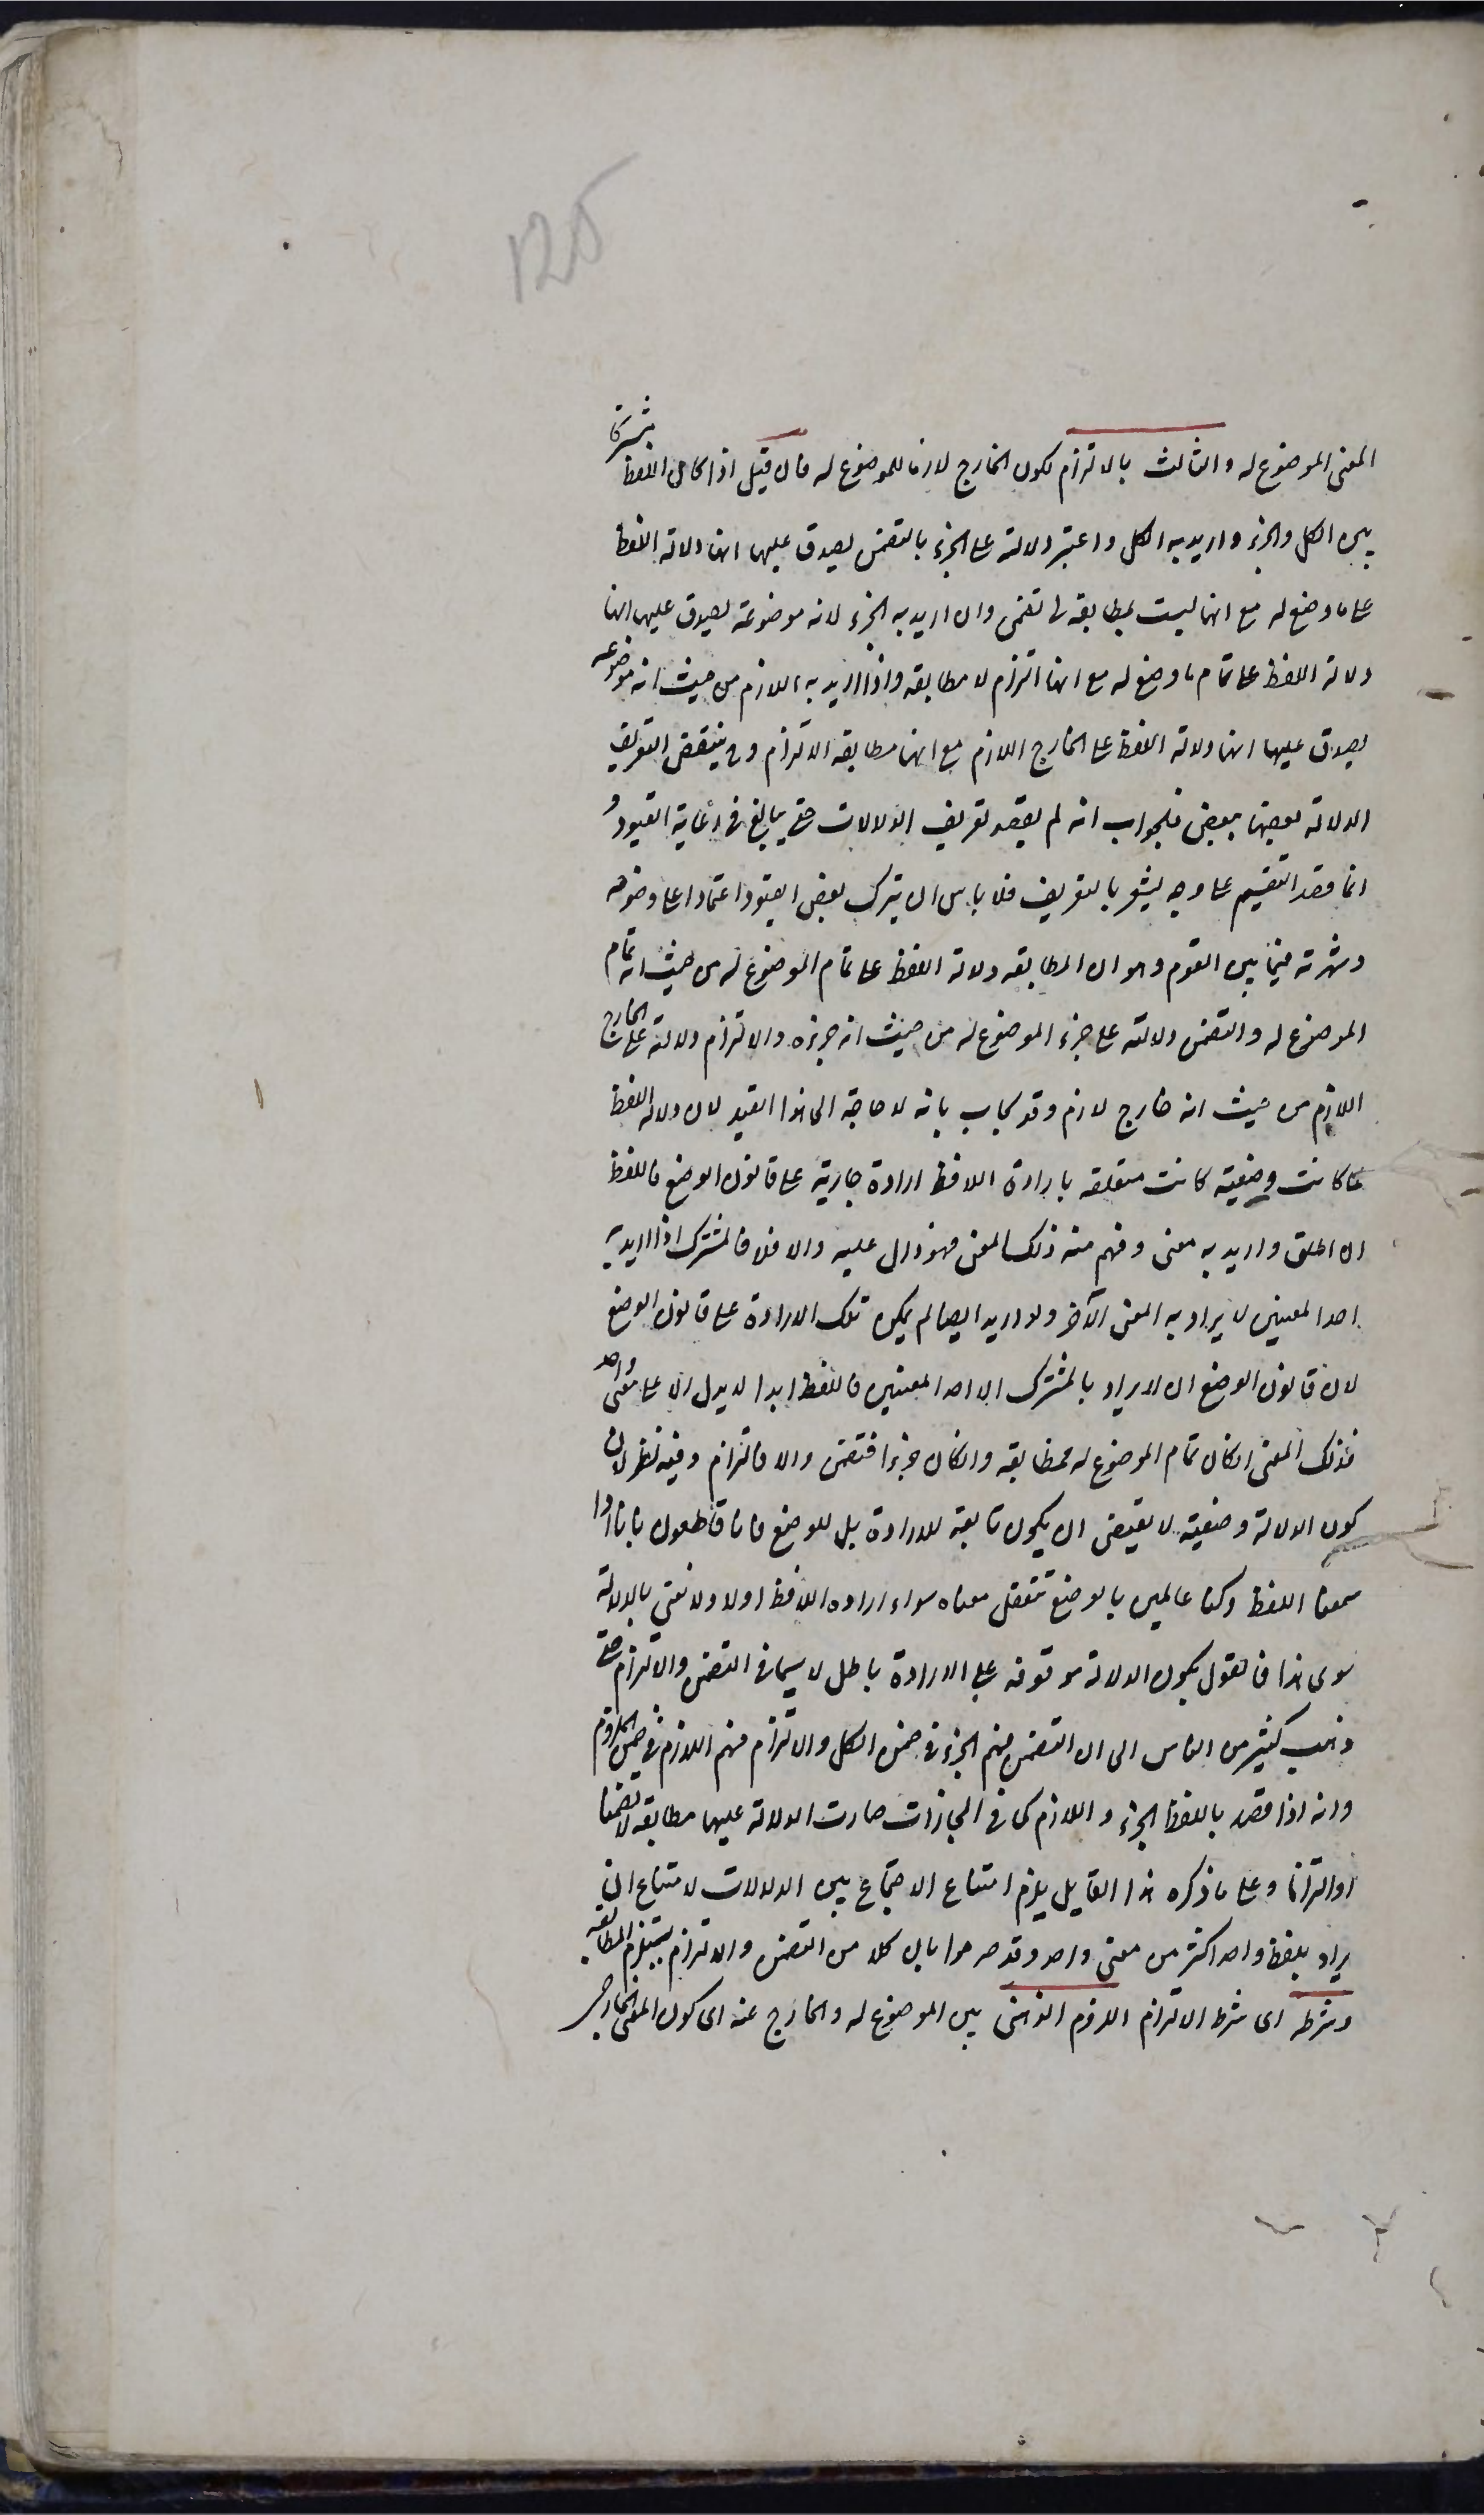 125
المعنى الموضوع له والثالث بالالتزام لكون الخارج لازما للموضوع له فان قيل اذا كان اللفظ مشتركا
بين الكل والجزء واريد به الكل واعتبر دلالته على الجزء بالتضمن يصدق عليها انها دلالة اللفظ
على ما وضع له مع انها ليست بمطابقة بل تضمن وان اريد به الجزء لانه موضوعه يصدق عليها انها
دلالة اللفظ على تمام ما وضع له مع انها التزام لا مطابقة واذا اريد به اللازم من حيث انه موضوعه
يصدق عليها انها دلالة اللفظ على الخارج اللازم مع انها مطابقة لا التزام وح ينتقض التعريف
الدلالة بعضها ببعض فالجواب انه لم يقصد تعريف الدلالات حتى يبالغ في رعاية القيود و
انما قصد التقسيم على وجه يشعر بالتعريف فلا باس ان يترك بعض القيود اعتمادا على وضوحه
وشهرته فيما بين القوم وهو ان المطابقة دلالة اللفظ على تمام الموضوع له من حيث انه تمام
الموضوع له والتضمن دلالته على جزء الموضوع له من حيث انه جزءه والالتزام دلالته على الخارج
اللازم من حيث انه خارج لازم وقد يجاب بانه لا حاجة الى هذا القيد لان دلالة اللفظ
لما كانت وضعية كانت متعلقة بارادة اللافظ ارادة جارية على قانون الوضع فاللفظ
ان اطلق واريد به معنى وفهم منه ذلك المعنى فهو دال عليه والا فلا فالمشترك اذا اريد به
احد المعنيين لا يراد به المعنى الآخر ولو اريد ايضا لم يكن تلك الارادة على قانون الوضع
لان قانون الوضع ان لا يراد بالمشترك الا احد المعنيين فاللفظ ابدا لا يدل الا على معنى واحد
فذلك المعنى ان كان تمام الموضوع له فمطابقة وان كان جزءا فتضمن والا فالتزام وفيه نظر لان
كون الدلالة وضعية لا يقتضى ان يكون تابعة للارادة بل للوضع فانا قاطعون بانا اذا
سمعنا اللفظ وكنا عالمين بالوضع نتعقل معناه سواء اراده اللافظ اولا ولا نعنى بالدلالة
سوى هذا فالقول بكون الدلالة موقوفة على الارادة باطل لا سيما في التضمن والالتزام حتى
ذهب كثير من الناس الى ان التضمن فهم الجزء في ضمن الكل والالتزام فهم اللازم في ضمن الملزوم
وانه اذا قصد باللفظ الجزء واللازم كما في المجازات صارت الدلالة عليها مطابقة لا تضمنا
او التزاما وعلى ما ذكره هذا القايل يلزم امتناع الاجتماع بين الدلالات لامتناع ان
يراد بلفظ واحد اكثر من معنى واحد وقد صرحوا بان كلا من التضمن والالتزام يستلزم المطابقة
وشرطه اى شرط الالتزام اللزوم الذهنى بين الموضوع له والخارج عنه اى كون المعنى الخارجى